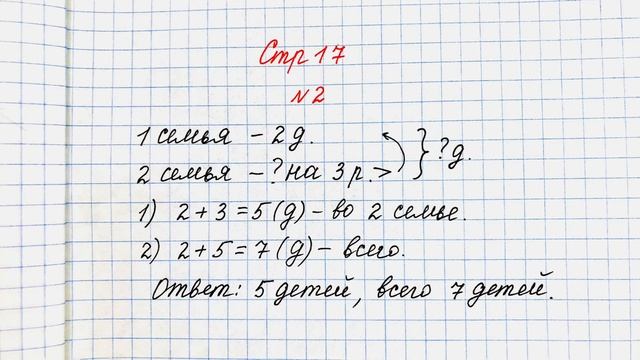 Стр 17
№2
1 семья – 2 д.
2 семья – ? на 3 р. > } ? д.
1) 2 + 3 = 5 (д) – во 2 семье.
2) 2 + 5 = 7 (д) – всего.
Ответ: 5 детей, всего 7 детей.